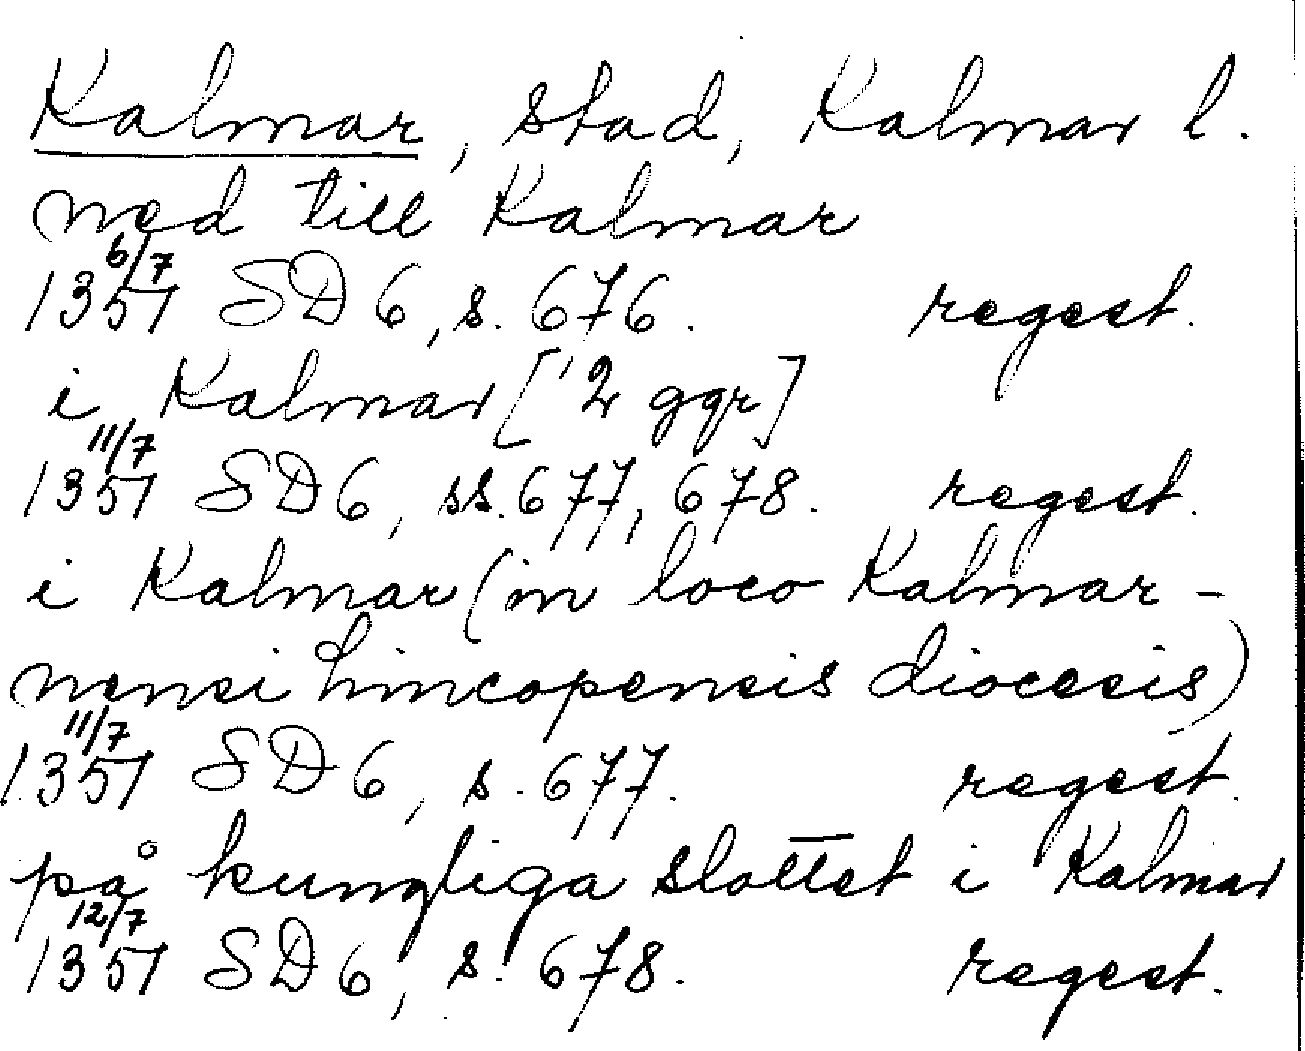 Kalmar, stad, Kalmar l.
ned till Kalmar
6/7
1357 SD 6, s. 676. regest.
i Kalmar [2 ggr]
11/7
1357 SD 6, ss. 677, 678. regest.
i Kalmar (in loco Kalmar-
nensi lincopensis diocesis)
11/7
1357 SD 6, s. 677. regest.
på kungliga slottet i Kalmar
12/7
1357 SD 6, s. 678. regest.